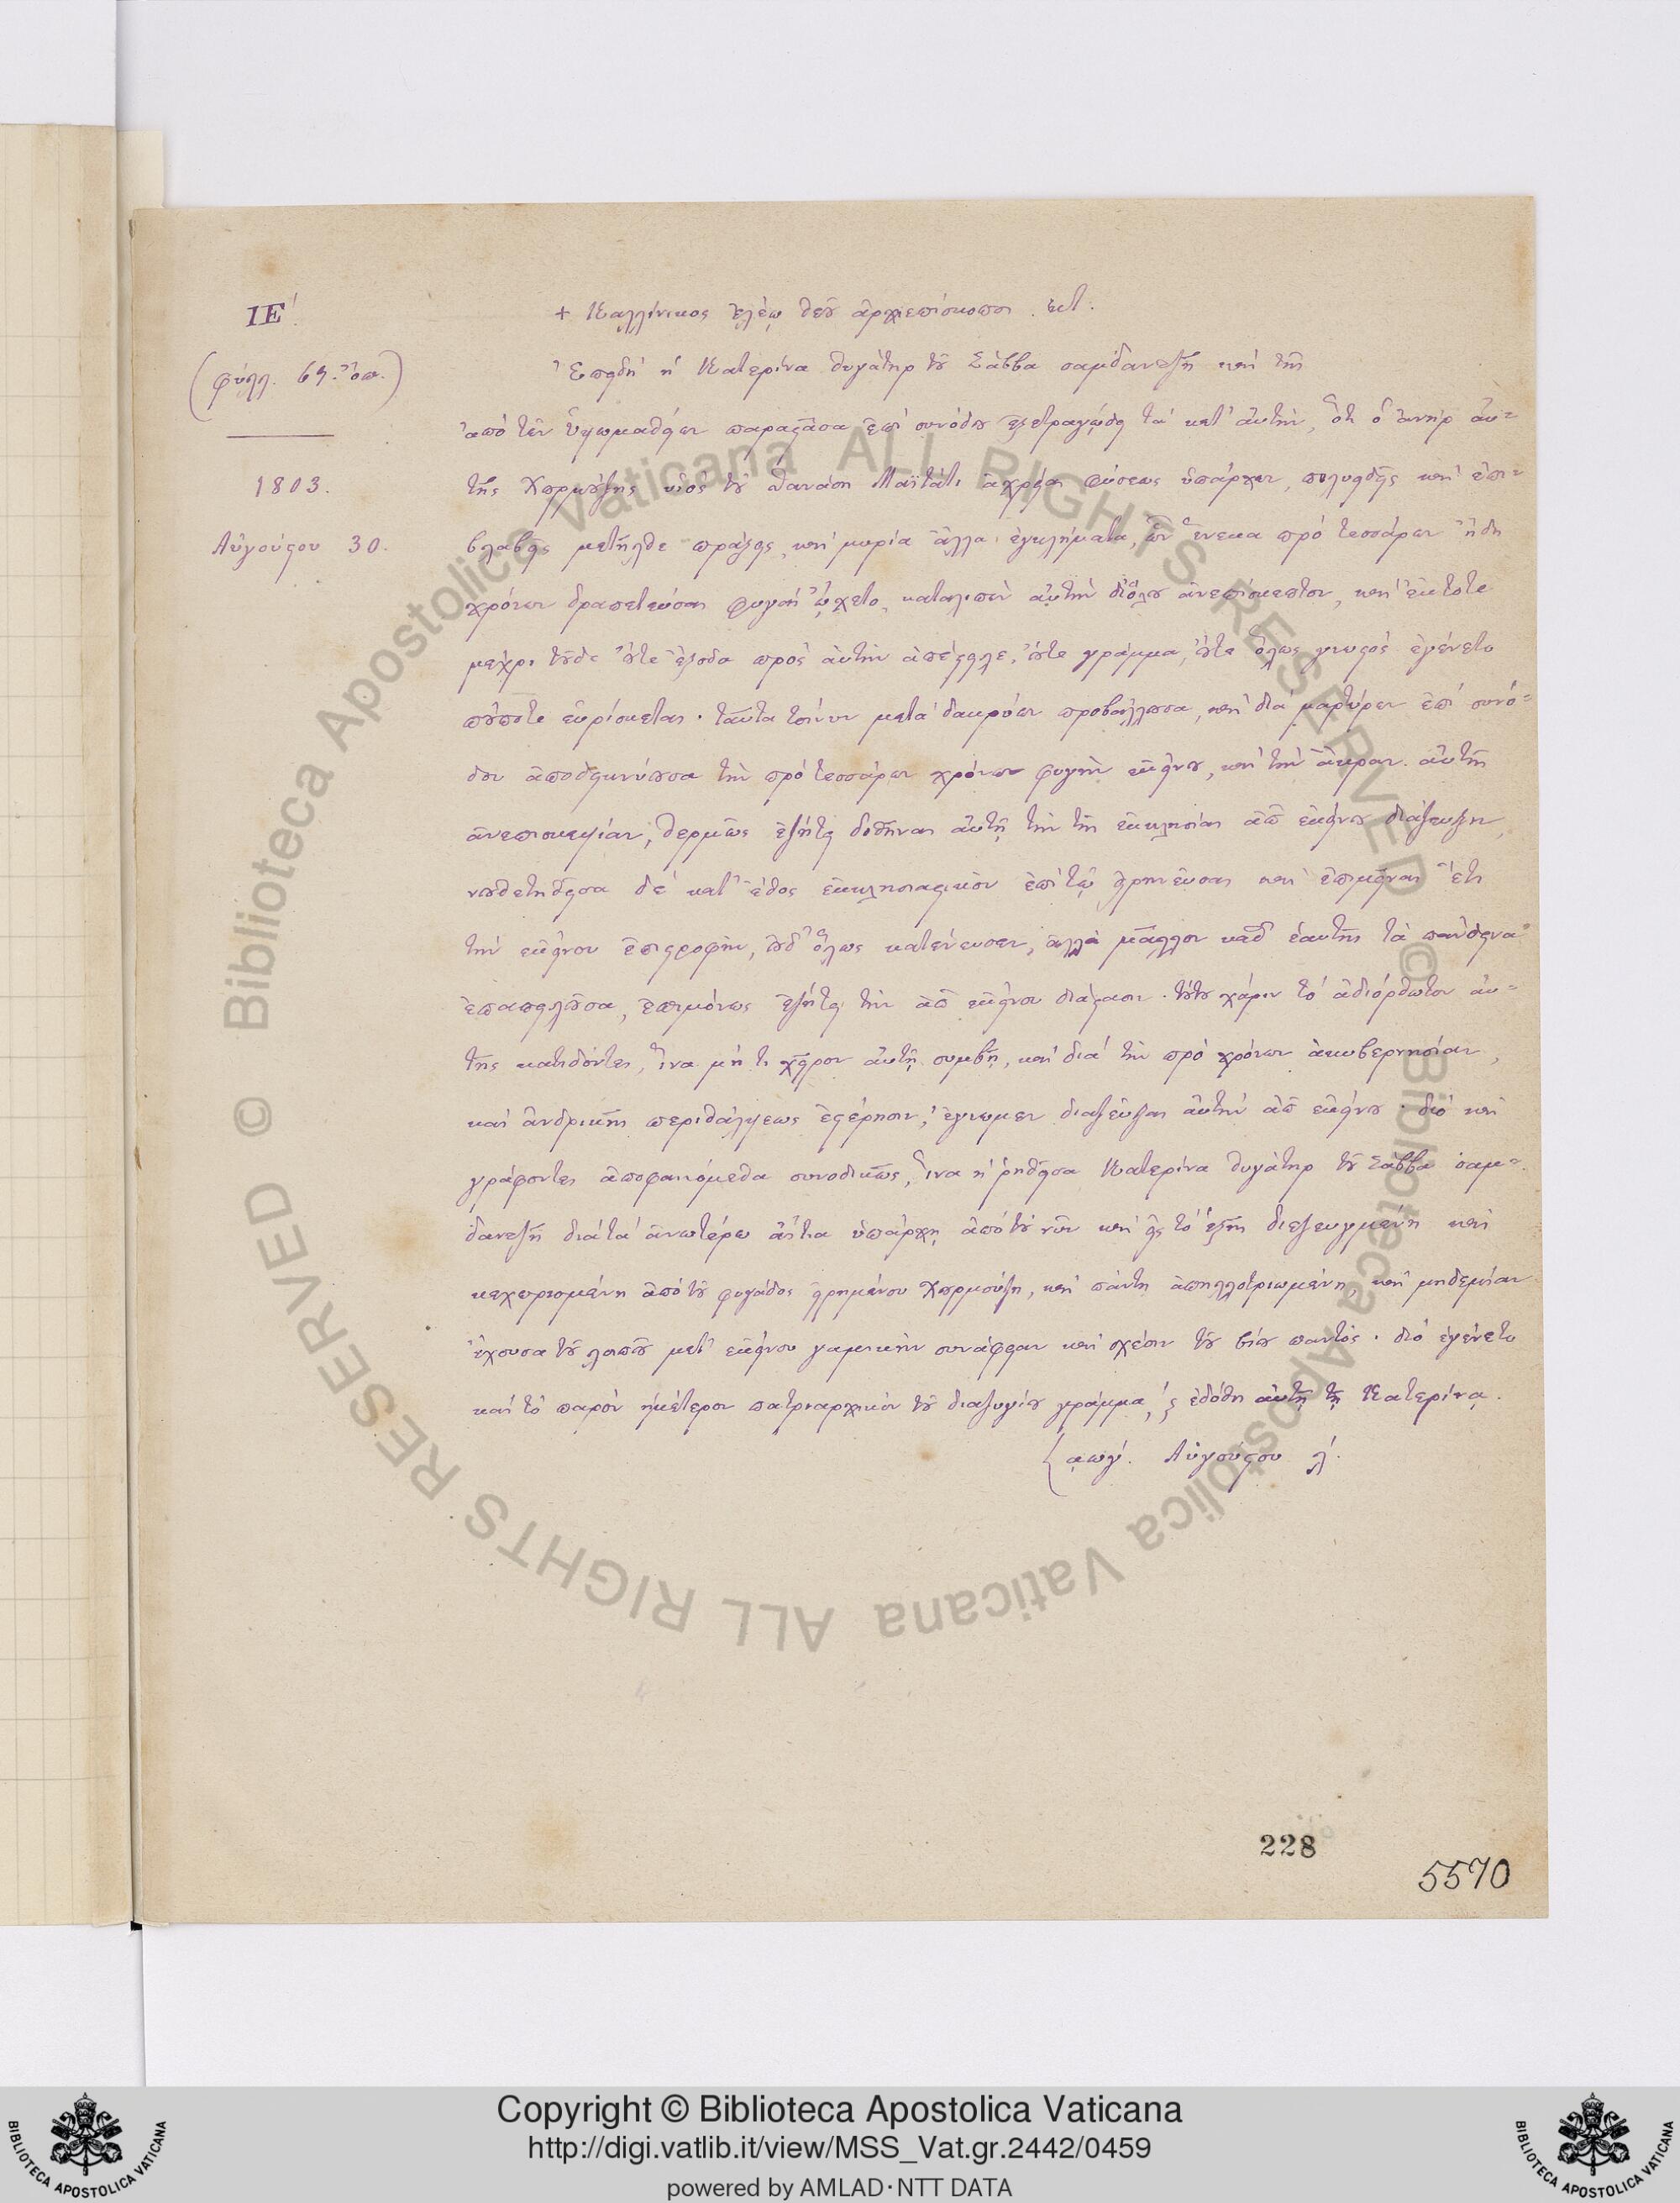 ΙΕ΄.
(φύλλ. 69. ὄπ.)
1803.
Αὐγούστου 30.
+ Καλλίνικος ἐλέῳ θεοῦ ἀρχιεπίσκοπος. κτ.
Ἐπειδὴ ἡ Κατερίνα θυγάτηρ τοῦ Σάββα σαμδανεζῆ καὶ τῆς
ἀπὸ τῶν Ὑψωμαθείων παραστᾶσα ἐπὶ συνόδου ἐξετραγῴδει τὰ κατ' αὐτὴν, ὅτι ὁ ἀνὴρ αὐ-
τῆς Χουρμούζης υἱὸς τοῦ Θανάση Μαϊτάτι ἀχρείας φύσεως ὑπάρχων, πολυειδεῖς καὶ ἐπι-
βλαβεῖς μετῆλθε πράξεις, καὶ μυρία ἄλλα ἐγκλήματα, ὧν ἕνεκα πρὸ τεσσάρων ἤδη
χρόνων δραπετεύσας φυγὰς ᾤχετο, καταλιπὼν αὐτὴν διόλου ἀνεπίσκεπτον, καὶ ἔκτοτε
μέχρι τοῦδε οὔτε ἔξοδα πρὸς αὐτὴν ἀπέστειλε, οὔτε γράμμα, οὔτε ὅλως γνωστὸς ἐγένετο
ποῦποτε εὑρίσκεται· ταῦτα τοίνυν μετὰ δακρύων προβάλλουσα, καὶ διὰ μαρτύρων ἐπὶ συνό-
δου ἀποδεικνύουσα τὴν πρὸ τεσσάρων χρόνων φυγὴν ἐκείνου, καὶ τὴν ἄκραν αὐτῆς
ἀνεπισκεψίαν, θερμῶς ἐζήτει δοθῆναι αὐτῇ τὴν τῆς ἐκκλησίας ἀπ' ἐκείνου διάζευξιν,
νουθετηθεῖσα δὲ κατ' ἔθος ἐκκλησιαστικὸν ἐπὶ τῷ εἰρηνεῦσαι καὶ ἐπιμεῖναι ἔτι
τὴν ἐκείνου ἐπιστροφὴν, οὐδ' ὅλως κατένευσεν, ἀλλὰ μᾶλλον καθ' ἑαυτῆς τὰ πάνδεινα
ἐπαπειλοῦσα, ἐπιμόνως ἐζήτει τὴν ἀπ' ἐκείνου διάστασιν· τούτου χάριν τὸ ἀδιόρθωτον αὐ-
τῆς κατιδόντες, ἵνα μή τι χεῖρον αὐτῇ συμβῇ, καὶ διὰ τὴν πρὸ χρόνων ἀκυβερνησίαν,
καὶ ἀνδρικῆς περιθάλψεως ἐστέρησιν, ἔγνωμεν διαζεῦξαι αὐτὴν ἀπ' ἐκείνου· διὸ καὶ
γράφοντες ἀποφαινόμεθα συνοδικῶς, ἵνα ἡ ῥηθεῖσα Κατερίνα θυγάτηρ τοῦ Σάββα σαμ-
δανεζῆ διὰ τὰ ἀνωτέρω αἴτια ὑπάρχῃ ἀπὸ τοῦ νῦν καὶ εἰς τὸ ἑξῆς διεζευγμένη καὶ
κεχωρισμένη ἀπὸ τοῦ φυγάδος εἰρημένου Χουρμούζη, καὶ πάντῃ ἀπηλλοτριωμένη, καὶ μηδεμίαν
ἔχουσα τοῦ λοιποῦ μετ' ἐκείνου γαμικὴν συνάφειαν καὶ σχέσιν τοῦ βίου παντός· διὸ ἐγένετο
καὶ τὸ παρὸν ἡμέτερον πατριαρχικὸν τοῦ διαζυγίου γράμμα, καὶ ἐδόθη αὐτῇ τῇ Κατερίνᾳ.
͵αωγ΄. Αὐγούστου λ΄.
228
5570
© Biblioteca Apostolica Vaticana ALL RIGHTS RESERVED
© Biblioteca Apostolica Vaticana ALL RIGHTS RESERVED
Copyright © Biblioteca Apostolica Vaticana
http://digi.vatlib.it/view/MSS_Vat.gr.2442/0459
powered by AMLAD·NTT DATA
BIBLIOTECA APOSTOLICA VATICANA
BIBLIOTECA APOSTOLICA VATICANA